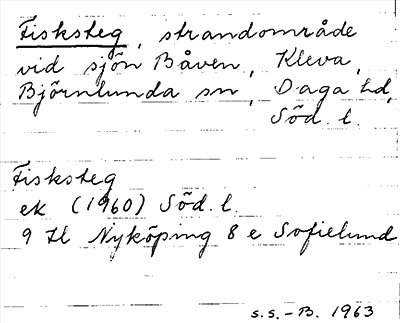 Fisksteg, strandområde
vid sjön Båven, Kleva,
Björnlunda sn, Daga hd,
Söd. l.
Fisksteg
ek (1960) Söd. l.
9 H Nyköping 8 e Sofielund
S.S.-B. 1963